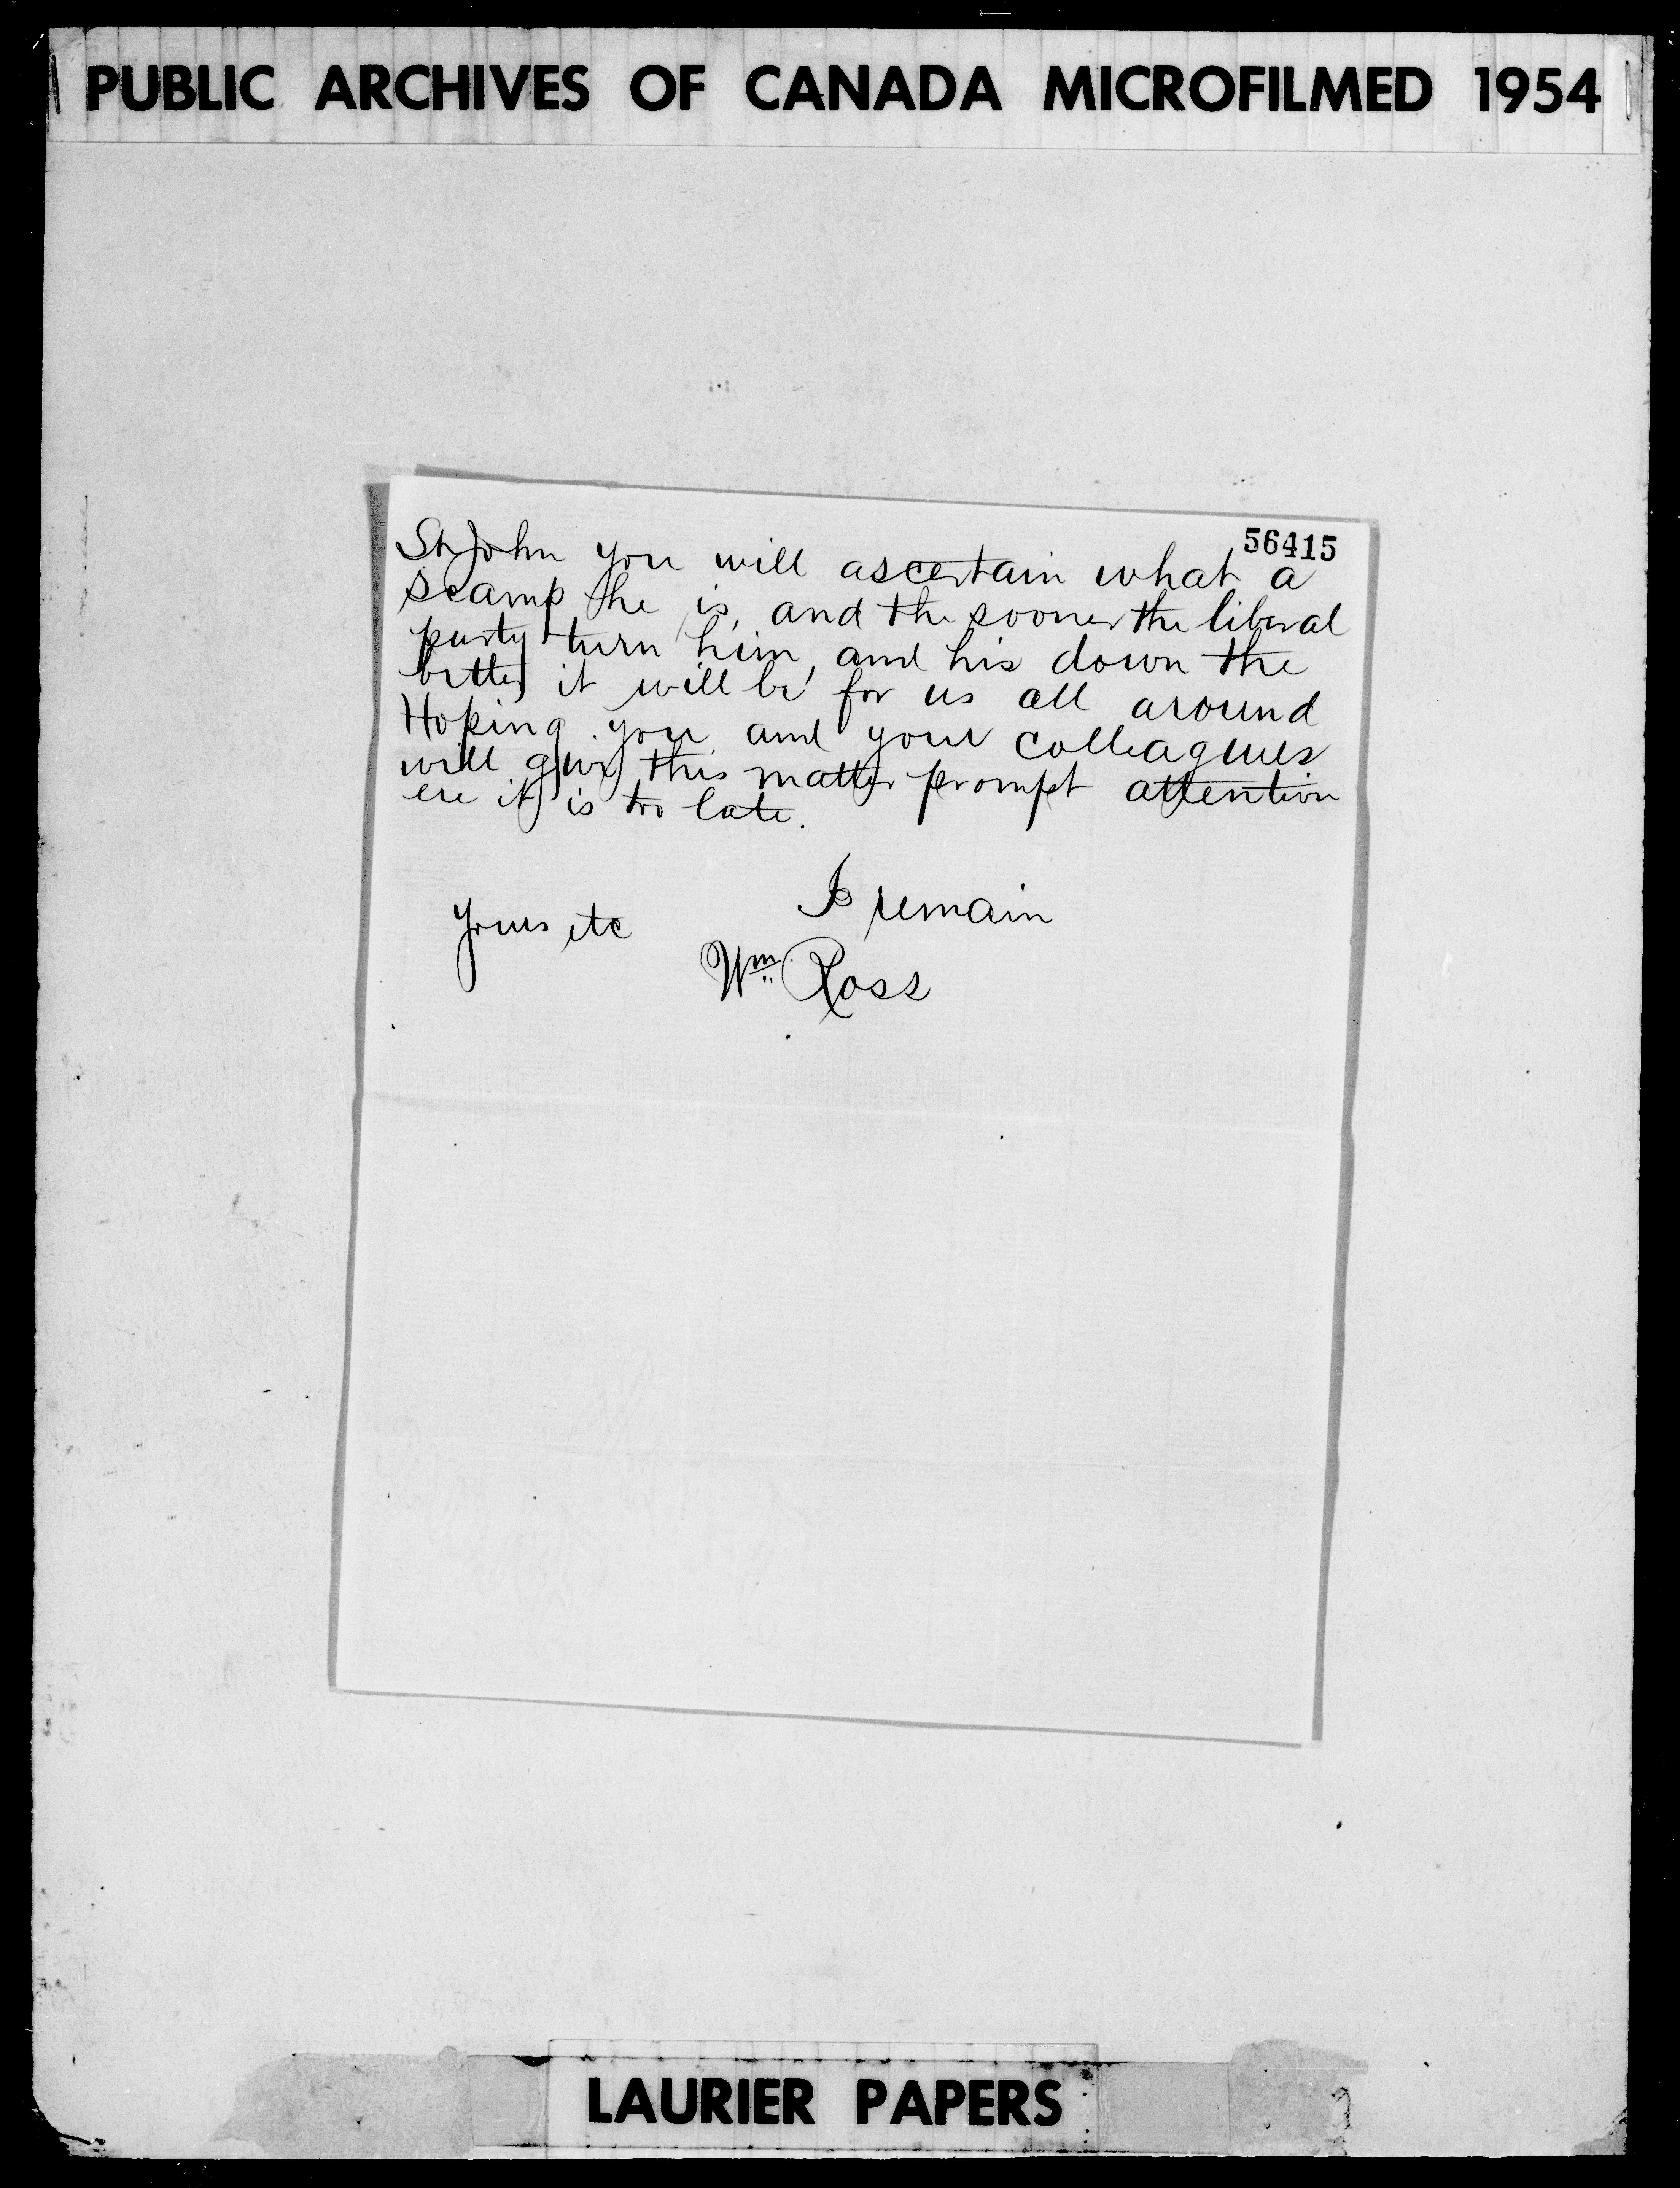 PUBLIC ARCHIVES OF CANADA MICROFILMED 1954
56415
St John you will ascertain what a
scamp he is, and the sooner the liberal
party turn him, and his down the
better it will be for us all around
Hoping you and your colleagues
will give this matter prompt attention
ere it is too late.
I remain
Yours etc
Wm Ross
LAURIER PAPERS